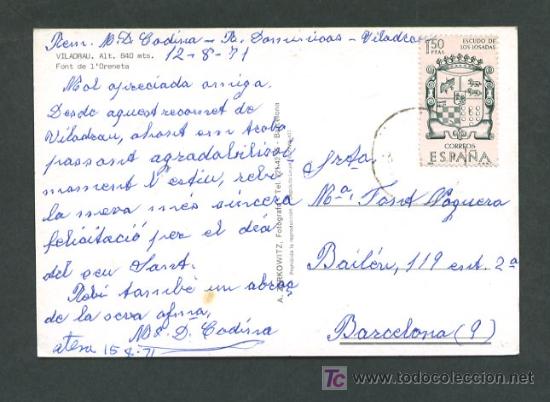 Rem. Mª D. Codina - Pl. Dominicas - Viladrau
12-8-71
VILADRAU. Alt. 840 mts.
Font de l'Oreneta
Mol apreciada amiga.
Desde aquest reconet de
Viladrau, ahont em trobo
passant agradabilissims
moment d'estiu, rebi
la meva més sincera
felicitació per el dia
del seu Sant.
Rebi també un abraç
de la seva afma,
Mª. D. Codina
15-8-71
A. ZERKOWITZ, Fotógrafo - Barcelona
Prohibida la reproducción
1'50
PTAS
ESCUDO DE
LOS LOSADAS
CORREOS
ESPAÑA
Srta.
Mª. Font Noguera
Bailén, 119 ent. 2ª
Barcelona (9)
TC todocoleccion.net
www.todocoleccion.net